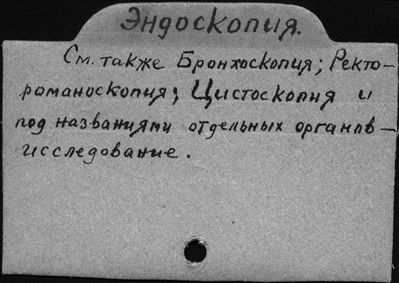 Эндоскопия.
См. также Бронхоскопия; Ректо-
романоскопия; Цистоскопия и
под названиями отдельных органов —
исследование.